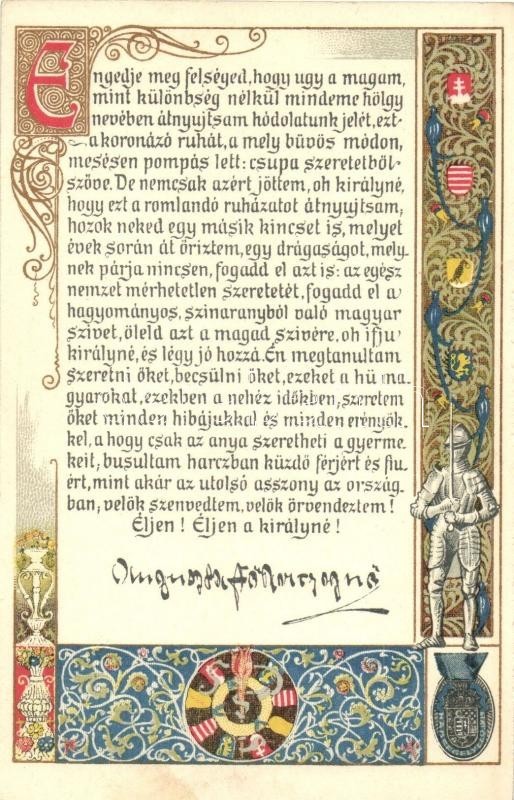 Engedje meg felséged, hogy ugy a magam,
mint különbség nélkül mindeme hölgy
nevében átnyujtsam hódolatunk jelét, ezt
a koronázó ruhát, a mely büvös módon,
mesésen pompás lett: csupa szeretetből
szőve. De nemcsak azért jöttem, oh királyné,
hogy ezt a romlandó ruházatot átnyujtsam;
hozok neked egy másik kincset is, melyet
évek során át őriztem, egy drágaságot, mely-
nek párja nincsen, fogadd el azt is: az egész
nemzet mérhetetlen szeretetét, fogadd el a
hagyományos, szinaranyból való magyar
szivet, öleld azt a magad szivére, oh ifju
királyné, és légy jó hozzá. Én megtanultam
szeretni őket, becsülni őket, ezeket a hü ma-
gyarokat, ezekben a nehéz időkben, szeretem
őket minden hibájukkal és minden erényök-
kel, a hogy csak az anya szeretheti a gyerme-
keit; busultam harczban küzdő férjért és fiu-
ért, mint akár az utolsó asszony az ország-
ban; velök szenvedtem, velök örvendeztem!
Éljen! Éljen a királyné!
Auguszta főherczegnő